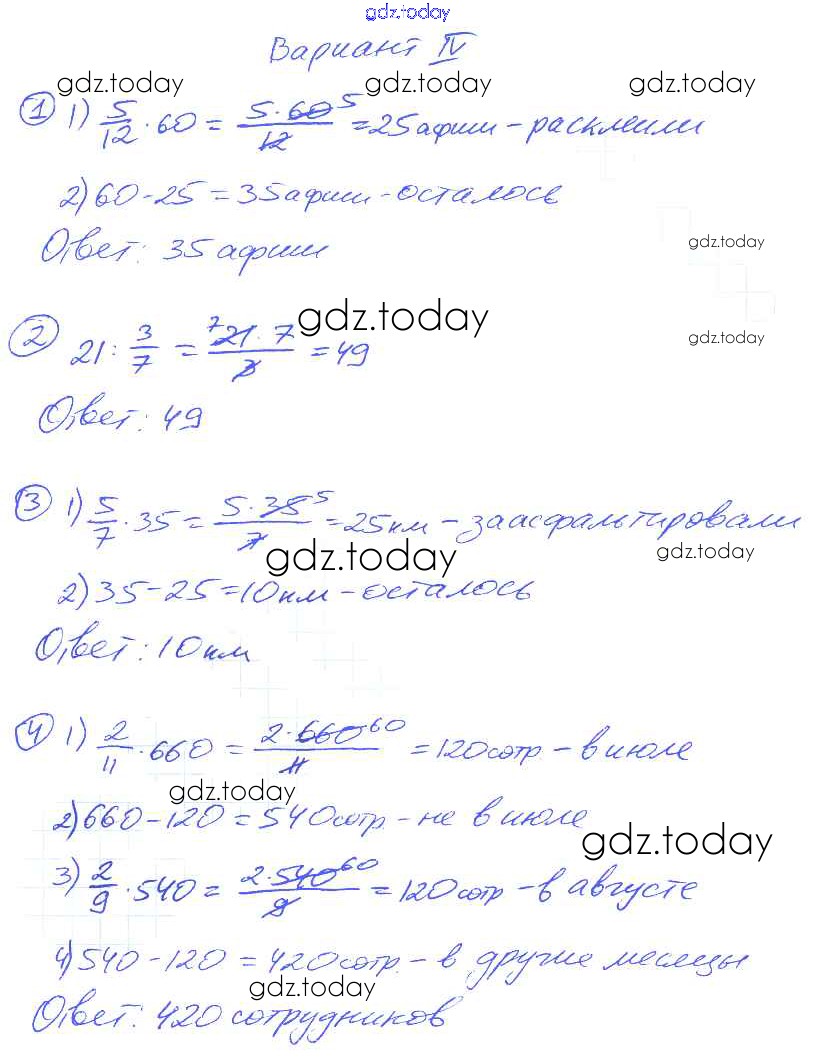 gdz.today
Вариант IV
gdz.today gdz.today gdz.today
1 1) 5/12 · 60 = 5·60 5/12 = 25 афиш – расклеили
2) 60 - 25 = 35 афиш – осталось
gdz.today
Ответ: 35 афиш
gdz.today
gdz.today
2 21 : 3/7 = 7 21·7/3 = 49
Ответ: 49
3 1) 5/7 · 35 = 5·35 5/7 = 25 км – заасфальтировали
gdz.today gdz.today
2) 35 - 25 = 10 км – осталось
Ответ: 10 км
4 1) 2/11 · 660 = 2·660 60/11 = 120 сотр – в июле
gdz.today
2) 660 - 120 = 540 сотр. – не в июле
gdz.today
3) 2/9 · 540 = 2·540 60/9 = 120 сотр – в августе
4) 540 - 120 = 420 сотр. – в другие месяцы
gdz.today
Ответ: 420 сотрудников